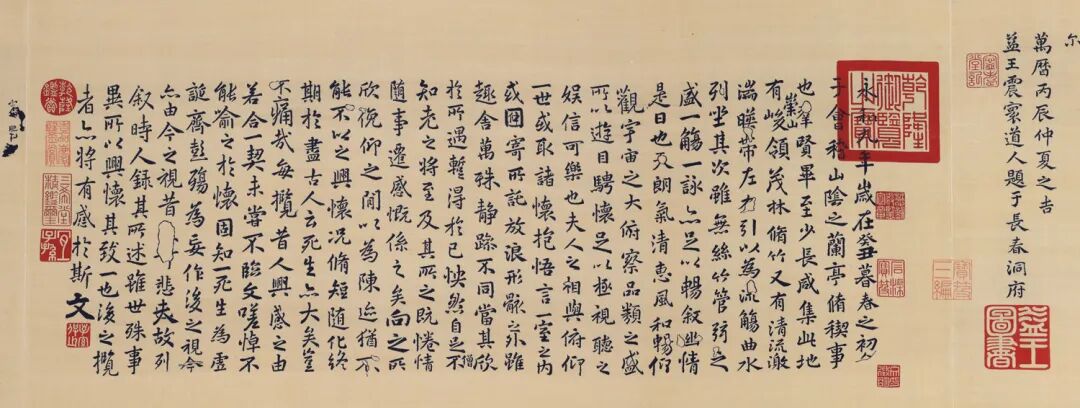 尔
萬曆丙辰仲夏之吉
益王震寰道人題于長春洞府
益王圖書
寶笈三編
永和九年歲在癸丑暮春之初
于會稽山陰之蘭亭脩稧事
也羣賢畢至少長咸集此地
有崇山峻領茂林脩竹又有清流激
湍暎帶左右引以為流觴曲水
列坐其次雖無絲竹管弦之
盛一觴一詠亦足以暢叙幽情
是日也天朗氣清惠風和暢仰
觀宇宙之大俯察品類之盛
所以遊目騁懷足以極視聽之
娛信可樂也夫人之相與俯仰
一世或取諸懷抱悟言一室之內
或因寄所託放浪形骸之外雖
趣舍萬殊静躁不同當其欣
於所遇暫得於己怏然自足不
僧
知老之將至及其所之既惓情
隨事遷感慨係之矣向之所
欣俛仰之間以為陳迹猶不
能不以之興懷況脩短隨化終
期於盡古人云死生亦大矣豈
不痛哉每攬昔人興感之由
若合一契未嘗不臨文嗟悼不
能喻之於懷固知一死生為虛
誕齊彭殤為妄作後之視今
亦由今之視昔悲夫故列
叙時人録其所述雖世殊事
異所以興懷其致一也後之攬
者亦將有感於斯文
乾隆鑑賞
三希堂精鑑璽
宜子孫